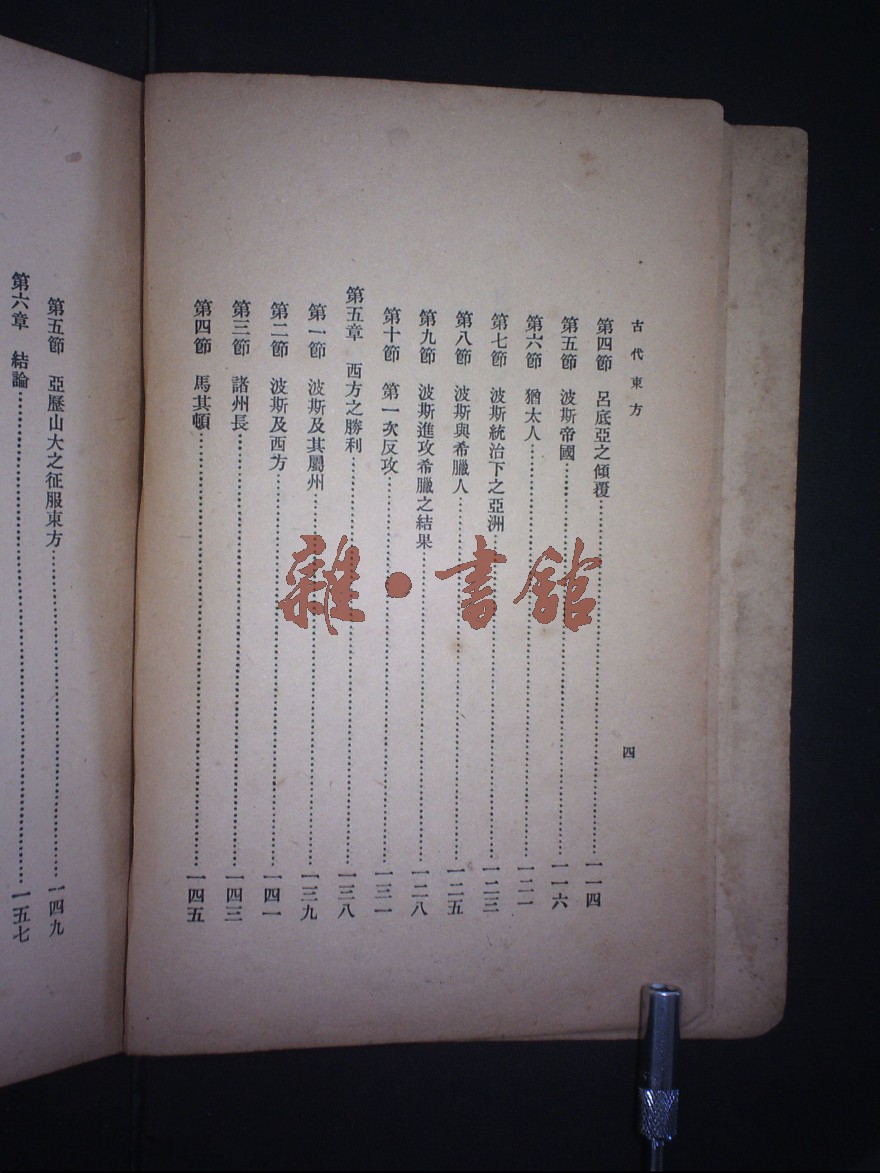 古代東方
四
第四節 呂底亞之傾覆……一一四
第五節 波斯帝國……一一六
第六節 猶太人……一二一
第七節 波斯統治下之亞洲……一二三
第八節 波斯與希臘人……一二五
第九節 波斯進攻希臘之結果……一二八
第十節 第一次反攻……一三一
第五章 西方之勝利……一三八
第一節 波斯及其屬州……一三九
第二節 波斯及西方……一四一
第三節 諸州長……一四三
第四節 馬其頓……一四五
第五節 亞歷山大之征服東方……一四九
第六章 結論……一五七
雜·書館